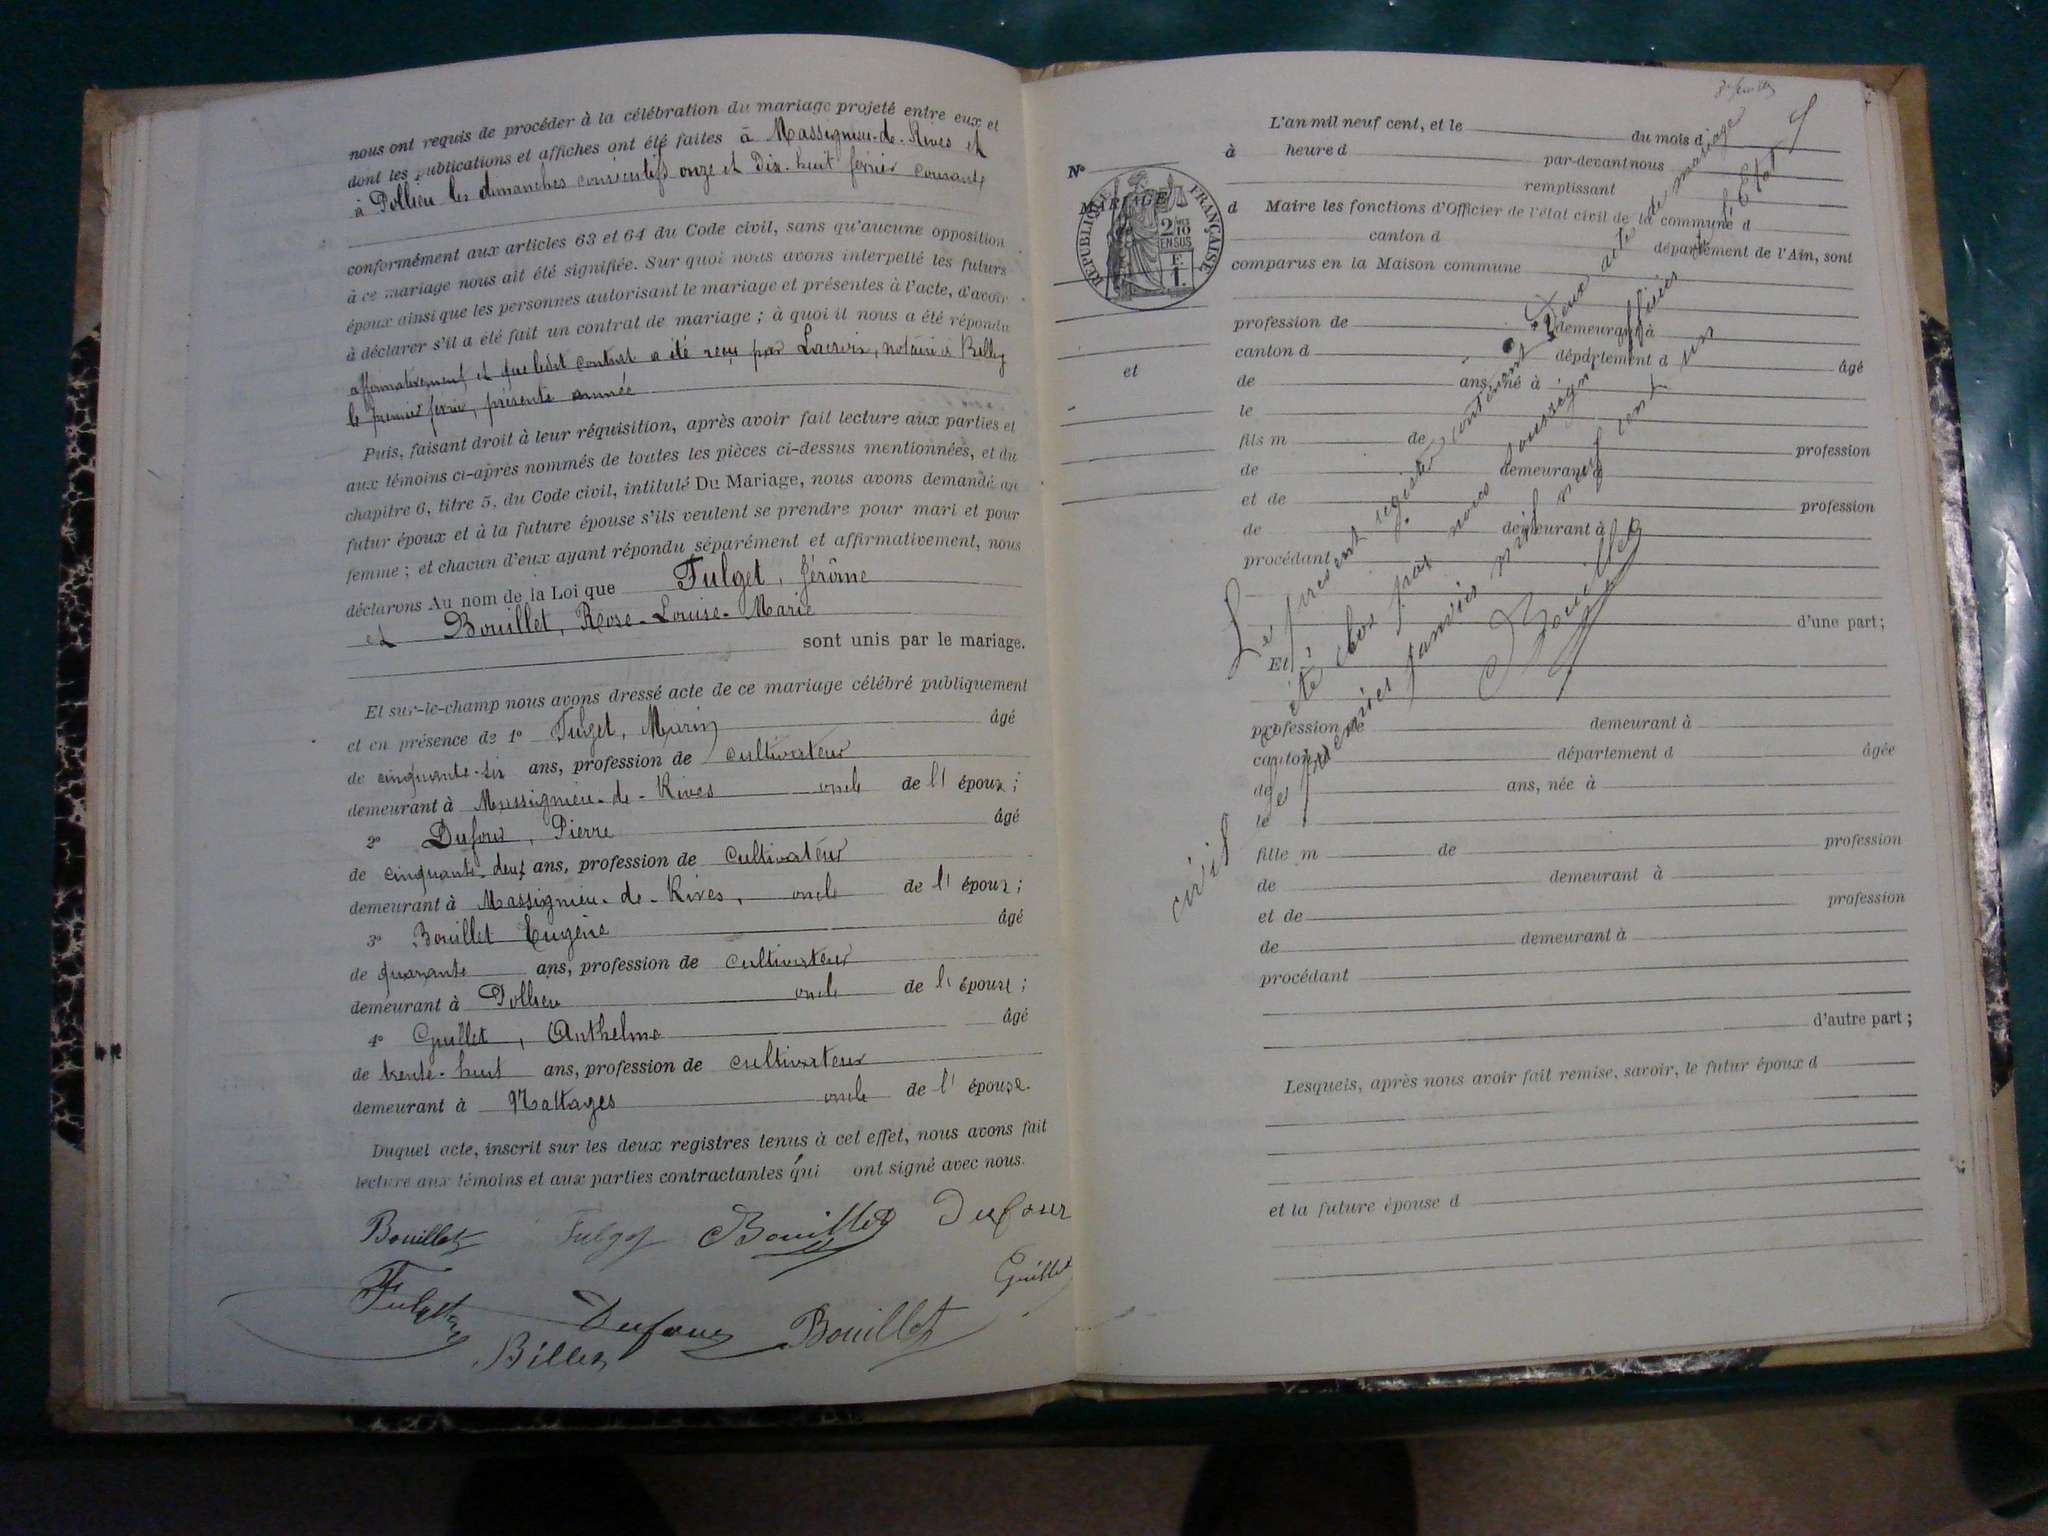 nous ont requis de procéder à la célébration du mariage projeté entre eux et
dont les publications et affiches ont été faites à Massignieu-de-Rives et
à Pollieu les dimanches consécutifs onze et dix-huit février courant
conformément aux articles 63 et 64 du Code civil, sans qu'aucune opposition
à ce mariage nous ait été signifiée. Sur quoi nous avons interpellé les futurs
époux ainsi que les personnes autorisant le mariage et présentes à l'acte, d'avoir
à déclarer s'il a été fait un contrat de mariage ; à quoi il nous a été répondu
affirmativement et que ledit contrat a été reçu par Lacroix, notaire à Belley
le premier février, présente année
Puis, faisant droit à leur réquisition, après avoir fait lecture aux parties et
aux témoins ci-après nommés de toutes les pièces ci-dessus mentionnées, et du
chapitre 6, titre 5, du Code civil, intitulé Du Mariage, nous avons demandé au
futur époux et à la future épouse s'ils veulent se prendre pour mari et pour
femme ; et chacun d'eux ayant répondu séparément et affirmativement, nous
déclarons Au nom de la Loi que Fulget, Jérôme
et Bouillet, Rose-Louise-Marie
sont unis par le mariage.
Et sur-le-champ nous avons dressé acte de ce mariage célébré publiquement
et en présence de 1° Fulget, Marin âgé
de cinquante-six ans, profession de cultivateur
demeurant à Massignieu-de-Rives oncle de l'époux ;
2° Dufour, Pierre âgé
de cinquante-deux ans, profession de cultivateur
demeurant à Massignieu-de-Rives, oncle de l'époux ;
3° Bouillet Eugène âgé
de quarante ans, profession de cultivateur
demeurant à Pollieu oncle de l'épouse ;
4° Guillet, Anthelme âgé
de trente-huit ans, profession de cultivateur
demeurant à Nattages oncle de l'épouse.
Duquel acte, inscrit sur les deux registres tenus à cet effet, nous avons fait
lecture aux témoins et aux parties contractantes qui ont signé avec nous.
Bouillet Fulget Bouillet Dufour
Guillet
Fulget Dufour Bouillet
Billet
N°
MARIAGE
RÉPUBLIQUE FRANÇAISE
2/10
EN SUS
F.
1.
et
L'an mil neuf cent, et le du mois d
à heure d par-devant nous
remplissant
d Maire les fonctions d'Officier de l'état civil de la commune d
canton d département de l'Ain, sont
comparus en la Maison commune
profession de demeurant à
canton d département d âgé
de ans, né à
le
fils m de profession
de demeurant à
et de profession
de demeurant à
procédant
d'une part ;
Et
profession de demeurant à
canton d département d âgée
de ans, née à
le
fille m de profession
de demeurant à
et de profession
de demeurant à
procédant
d'autre part ;
Lesquels, après nous avoir fait remise, savoir, le futur époux d
et la future épouse d
Le présent registre contenant deux actes de mariage
a été clos par nous soussigné officier de l'Etat
civil le premier janvier mil neuf cent un
Bouillet